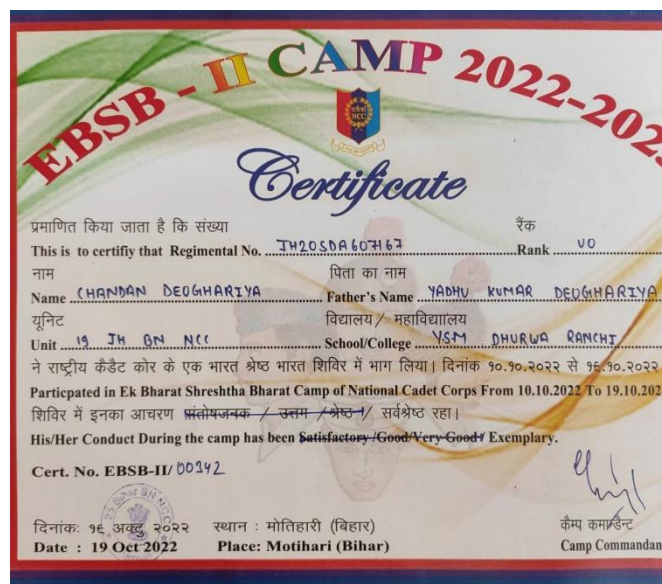 EBSB - II CAMP 2022-2023
NCC
Certificate
प्रमाणित किया जाता है कि संख्या रैंक
This is to certifiy that Regimental No. JH20SDA607167 Rank UO
नाम पिता का नाम
Name CHANDAN DEOGHARIYA Father's Name YADHU KUMAR DEOGHARIYA
यूनिट विद्यालय / महाविद्यालय
Unit 19 JH BN NCC School/College YSM DHURWA RANCHI
ने राष्ट्रीय कैडैट कोर के एक भारत श्रेष्ठ भारत शिविर में भाग लिया। दिनांक १०.१०.२०२२ से १९.१०.२०२२
Particpated in Ek Bharat Shreshtha Bharat Camp of National Cadet Corps From 10.10.2022 To 19.10.202
शिविर में इनका आचरण संतोषजनक / उत्तम / श्रेष्ठ / सर्वश्रेष्ठ रहा।
His/Her Conduct During the camp has been Satisfactory/Good/Very Good/ Exemplary.
Cert. No. EBSB-II/ 00342
23 Bihar BN NCC
दिनांक: १९ अक्टू २०२२ स्थान : मोतिहारी (बिहार) कैम्प कमान्डैन्ट
Date : 19 Oct 2022 Place: Motihari (Bihar) Camp Commandan